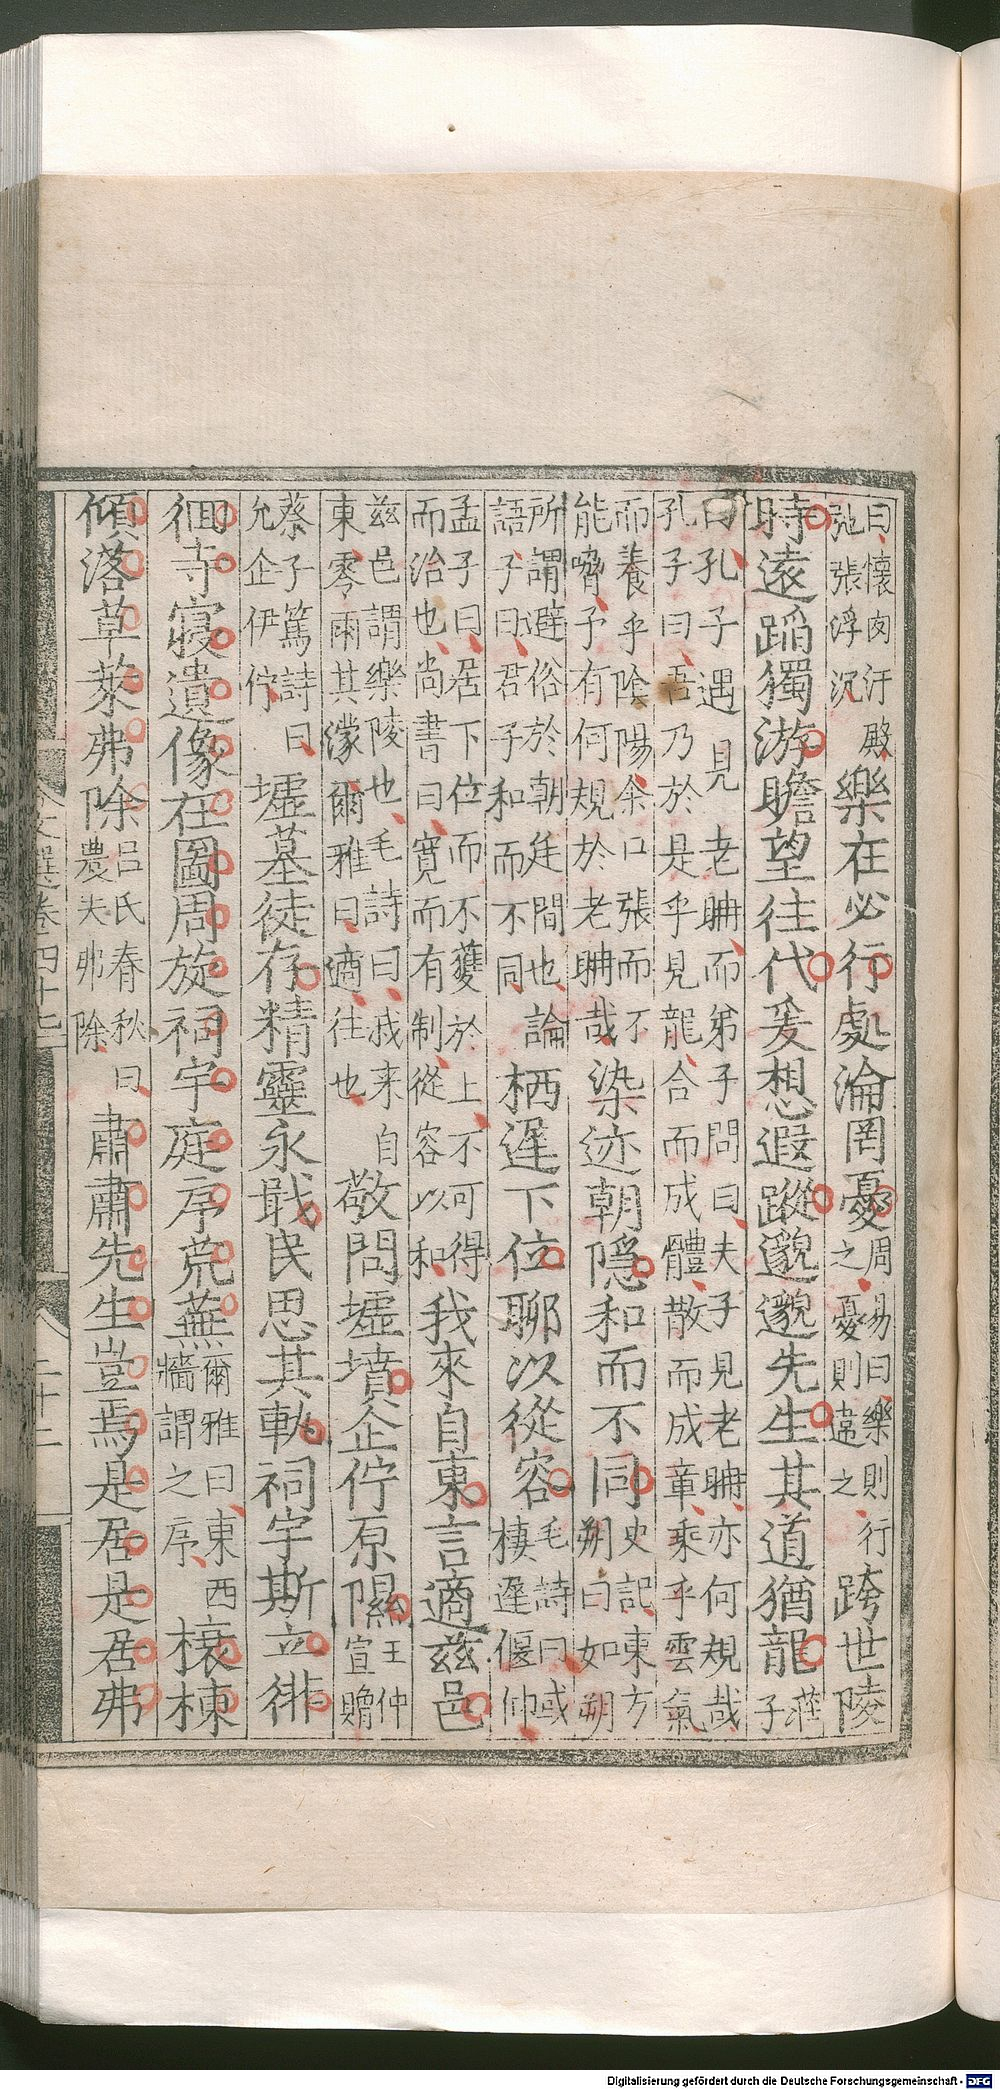 曰懷肉汙殿弛張浮沉樂在必行處淪罔憂周易曰樂則行之憂則違之跨世陵
時遠蹈獨游瞻望往代爰想遐蹤邈邈先生其道猶龍莊子
曰孔子遇見老聃而弟子問曰夫子見老聃亦何規哉
孔子曰吾乃於是乎見龍合而成體散而成章乘乎雲氣
而養乎陰陽余口張而不能嗋予有何規於老聃哉染迹朝隱和而不同史記東方朔曰如朔
所謂避俗於朝廷間也論語子曰君子和而不同栖遲下位聊以從容毛詩曰或棲遲偃仰
孟子曰居下位而不獲於上不可得而治也尚書曰寬而有制從容以和我來自東言適茲邑
茲邑謂樂陵也毛詩曰我来自東零雨其濛爾雅曰適往也敬問墟墳企佇原隰王仲宣贈
蔡子篤詩曰允企伊佇墟墓徒存精靈永戢民思其軌祠宇斯立徘
徊寺寢遺像在圖周旋祠宇庭序荒蕪爾雅曰東西牆謂之序榱棟
傾落草萊弗除呂氏春秋曰農夫弗除肅肅先生豈焉是居是居弗
文選卷四十七
二十二
Digitalisierung gefördert durch die Deutsche Forschungsgemeinschaft - DFG